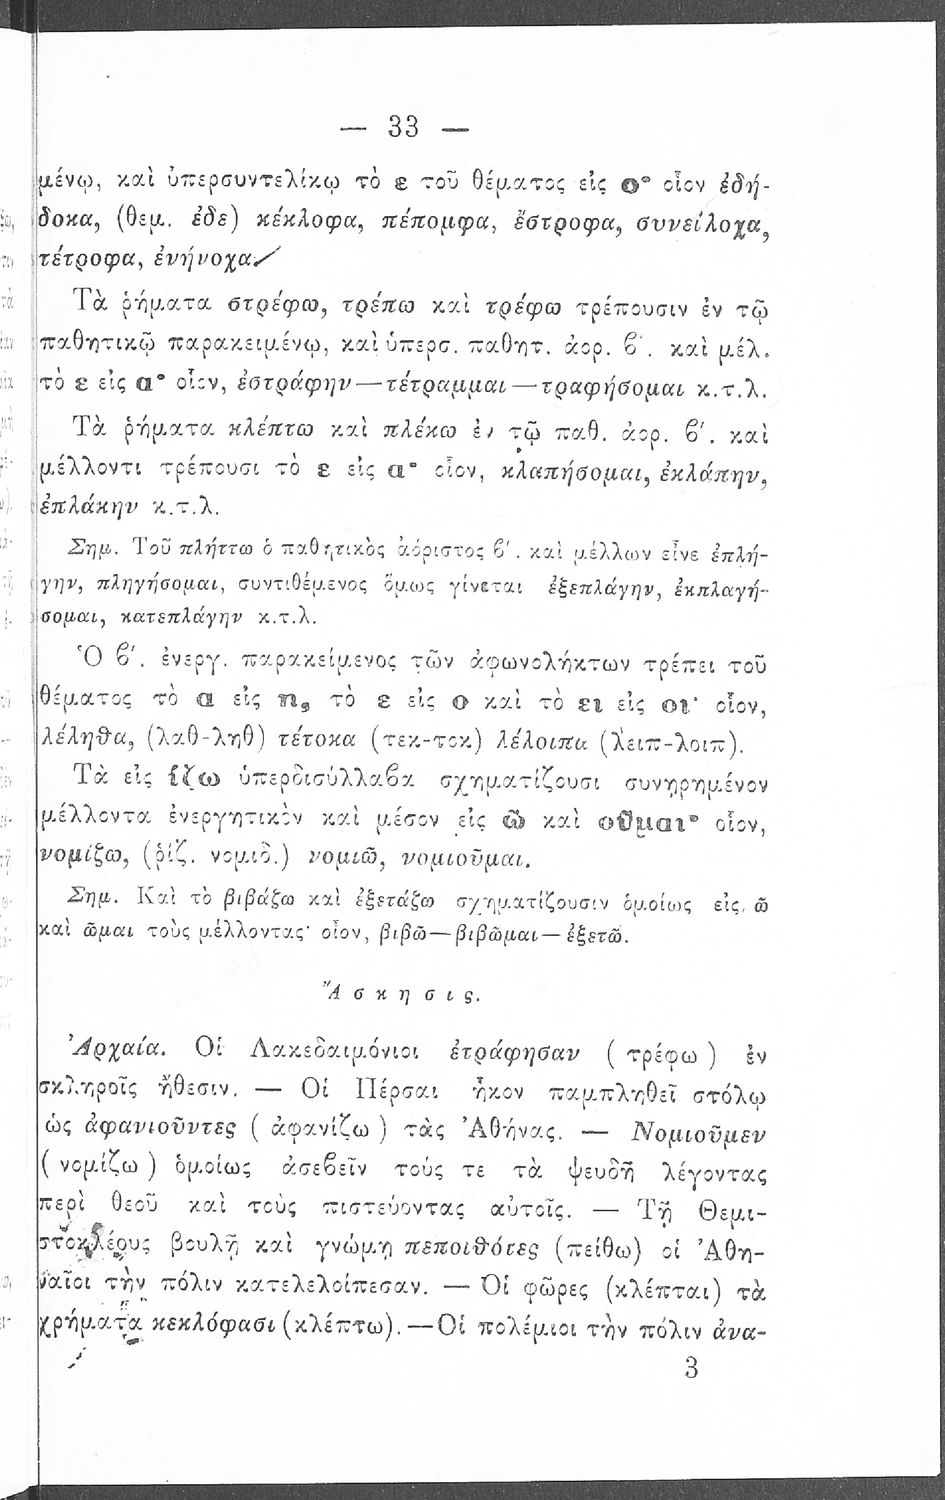 — 33 —
μένῳ, καὶ ὑπερσυντελίκῳ τὸ ε τοῦ θέματος εἰς ο· οἷον ἐδή-
δοκα, (θεμ. ἐδε) κέκλοφα, πέπομφα, ἔστροφα, συνείλοχα,
τέτροφα, ἐνήνοχα.
Τὰ ῥήματα στρέφω, τρέπω καὶ τρέφω τρέπουσιν ἐν τῷ
παθητικῷ παρακειμένῳ, καὶ ὑπερσ. παθητ. ἀορ. β΄. καὶ μέλ.
τὸ ε εἰς α· οἷον, ἐστράφην—τέτραμμαι—τραφήσομαι κ.τ.λ.
Τὰ ῥήματα κλέπτω καὶ πλέκω ἐν τῷ παθ. ἀορ. β΄. καὶ
μέλλοντι τρέπουσι τὸ ε εἰς α· οἷον, κλαπήσομαι, ἐκλάπην,
ἐπλάκην κ.τ.λ.
Σημ. Τοῦ πλήττω ὁ παθητικὸς ἀόριστος β΄. καὶ μέλλων εἶνε ἐπλή-
γην, πληγήσομαι, συντιθέμενος ὅμως γίνεται ἐξεπλάγην, ἐκπλαγή-
σομαι, κατεπλάγην κ.τ.λ.
Ὁ β΄. ἐνεργ. παρακείμενος τῶν ἀφωνολήκτων τρέπει τοῦ
θέματος τὸ α εἰς η, τὸ ε εἰς ο καὶ τὸ ει εἰς οι· οἷον,
λέληθα, (λαθ-ληθ) τέτοκα (τεκ-τοκ) λέλοιπα (λειπ-λοιπ).
Τὰ εἰς ίζω ὑπερδισύλλαβα σχηματίζουσι συνῃρημένον
μέλλοντα ἐνεργητικὸν καὶ μέσον εἰς ῶ καὶ οῦμαι· οἷον,
νομίζω, (ῥίζ. νομιδ.) νομιῶ, νομιοῦμαι.
Σημ. Καὶ τὸ βιβάζω καὶ ἐξετάζω σχηματίζουσιν ὁμοίως εἰς ῶ
καὶ ῶμαι τοὺς μέλλοντας· οἷον, βιβῶ—βιβῶμαι—ἐξετῶ.
Ἄσκησις.
Ἀρχαία. Οἱ Λακεδαιμόνιοι ἐτράφησαν (τρέφω) ἐν
σκληροῖς ἤθεσιν. — Οἱ Πέρσαι ἧκον παμπληθεῖ στόλῳ
ὡς ἀφανιοῦντες (ἀφανίζω) τὰς Ἀθήνας. — Νομιοῦμεν
(νομίζω) ὁμοίως ἀσεβεῖν τούς τε τὰ ψευδῆ λέγοντας
περὶ θεοῦ καὶ τοὺς πιστεύοντας αὐτοῖς. — Τῇ Θεμι-
στοκλέους βουλῇ καὶ γνώμῃ πεποιθότες (πείθω) οἱ Ἀθη-
ναῖοι τὴν πόλιν κατελελοίπεσαν. — Οἱ φῶρες (κλέπται) τὰ
χρήματα κεκλόφασι (κλέπτω).—Οἱ πολέμιοι τὴν πόλιν ἀνα-
3